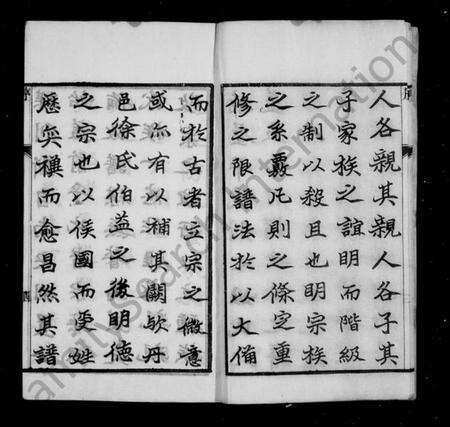 人各親其親人各子其
子家族之誼明而階級
之制以殺且也明宗族
之系覈凡則之條定重
修之限譜法於以大備
而於古者立宗之微意
或亦有以補其闕歟丹
邑徐氏伯益之後明德
之宗也以侯國而受姓
歷矣禩而愈昌然其譜
FamilySearch International